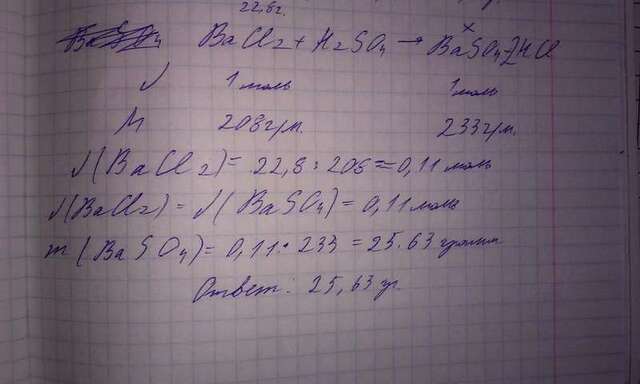 22,8г.
x
BaSO4 BaCl2 + H2SO4 → BaSO4 + 2HCl
√ 1 моль 1 моль
M 208 г/м. 233 г/м.
√(BaCl2) = 22,8 : 208 = 0,11 моль
√(BaCl2) = √(BaSO4) = 0,11 моль
m (BaSO4) = 0,11 · 233 = 25.63 грамм
Ответ: 25,63 гр